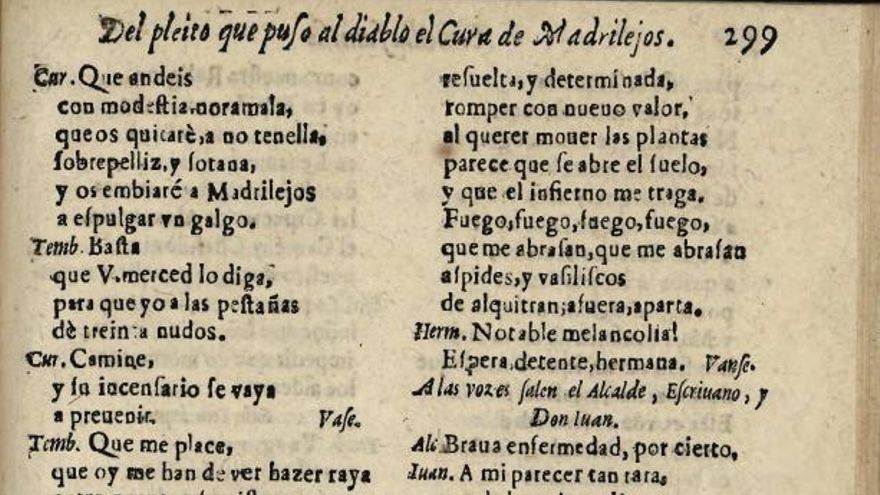 Del pleito que puso al diablo el Cura de Madrilejos. 299
Cur. Que andeis
con modestia, noramala,
que os quitarè, a no tenella,
sobrepelliz, y sotana,
y os embiaré a Madrilejos
a espulgar vn galgo.
Temb. Basta
que V. merced lo diga,
para que yo a las pestañas
dè treinta nudos.
Cur. Camine,
y su incensario se vaya
a preuenir. Vase.
Temb. Que me place,
que oy me han de ver hazer raya
resuelta, y determinada,
romper con nueuo valor,
al querer mouer las plantas
parece que se abre el suelo,
y que el infierno me traga.
Fuego, fuego, fuego, fuego,
que me abrasan, que me abrasan
aspides, y vasiliscos
de alquitran; afuera, aparta.
Herm. Notable melancolia!
Espera, detente, hermana. Vanse.
A las vozes salen el Alcalde, Escriuano, y
Don Iuan.
Alc Braua enfermedad, por cierto,
Iuan. A mi parecer tan rara,